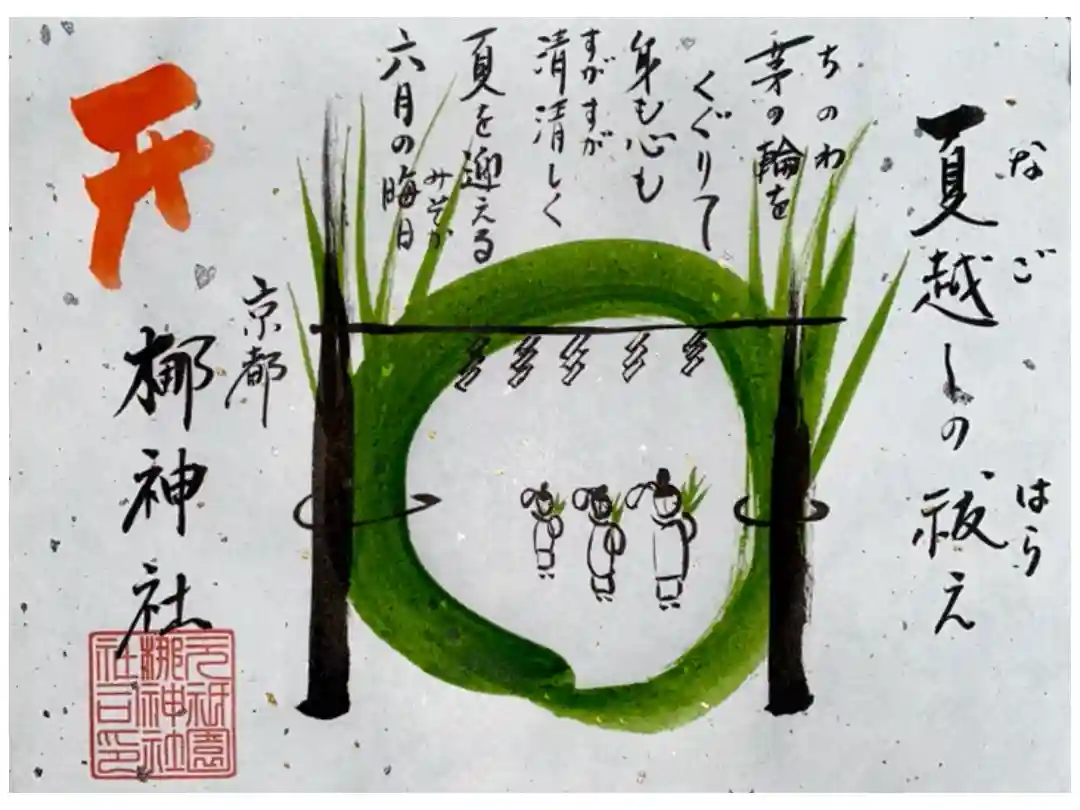 なご はら
夏越しの祓え
ちのわ
茅の輪を
くぐりて
身も心も
すがすが
清清しく
夏を迎える
みそか
六月の晦日
京都
梛神社
元祇園
梛神社
社司印